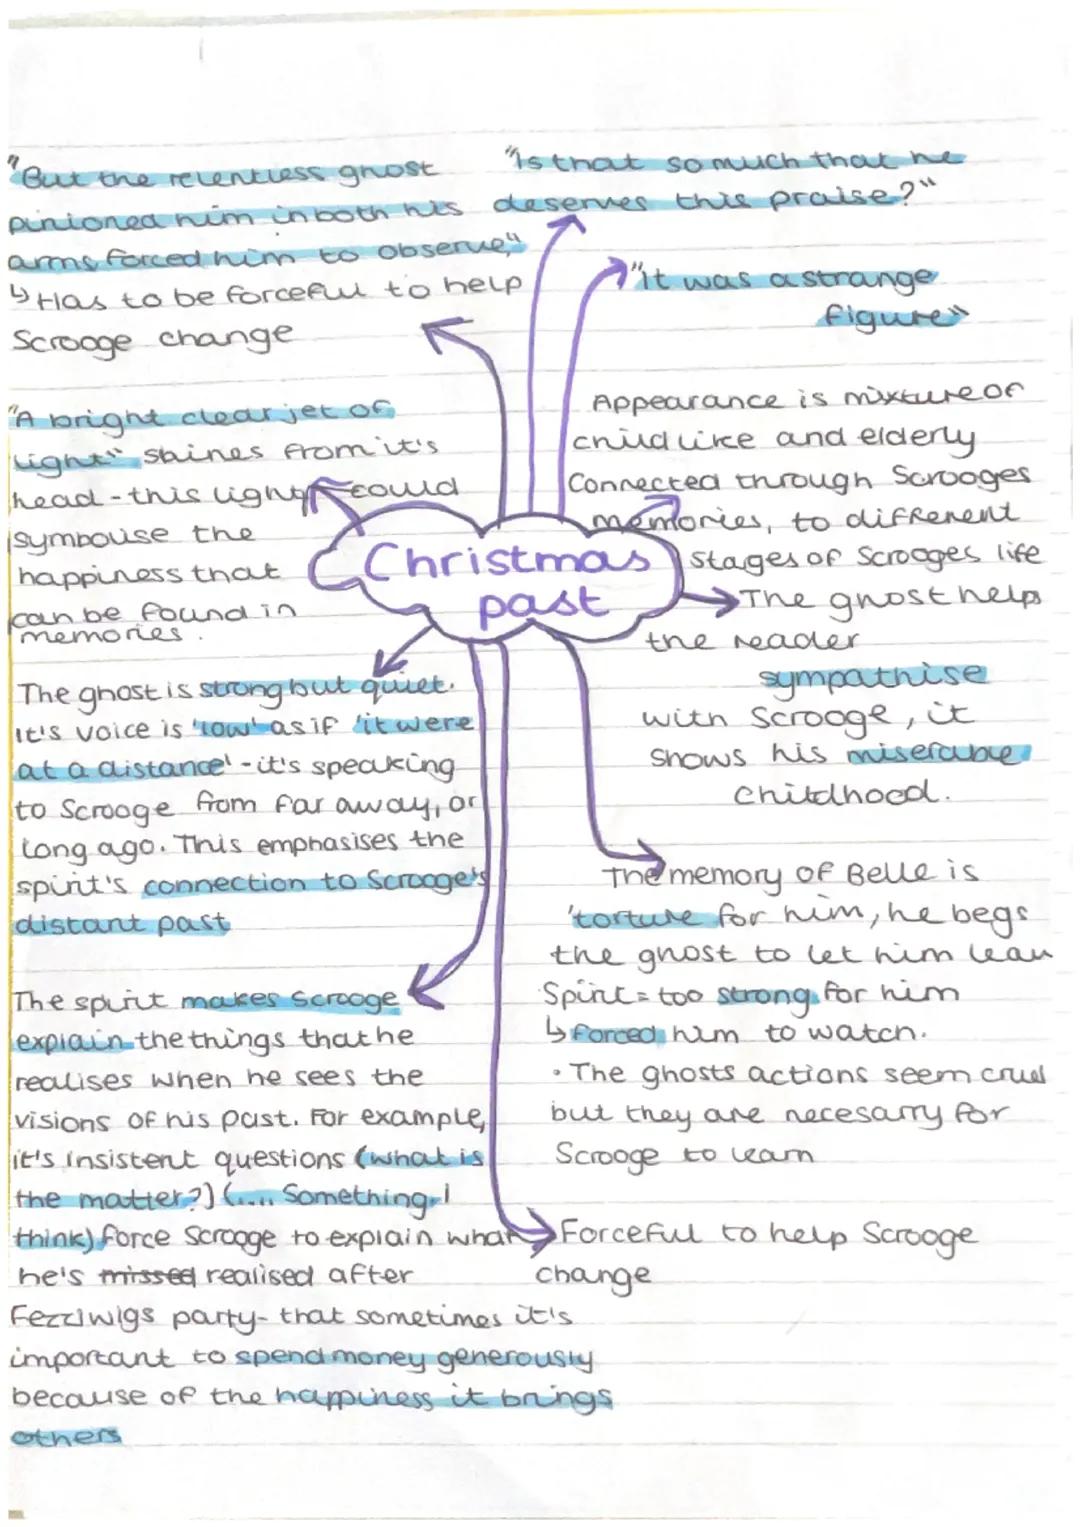 "But the relentless ghost
pinioned him in both his
arms forced him to observe,"
↳ Has to be forceful to help
Scrooge change
"Is that so much that he
deserves this praise?"
"it was a strange
figure"
"A bright clear jet of
light" shines from it's
head - this light could
symbolise the
happiness that
can be found in
memories.
Appearance is mixture of
childlike and elderly
Connected through Scrooges
memories, to different
stages of Scrooges life
Christmas
past
The ghost helps
the reader
sympathise
with Scrooge, it
shows his miserable
childhood.
The ghost is strong but quiet.
It's voice is 'low' as if 'it were
at a distance' - it's speaking
to Scrooge from far away, or
long ago. This emphasises the
spirit's connection to Scrooge's
distant past
The memory of Belle is
'torture for him, he begs
the ghost to let him leav
Spirit = too strong for him
↳ forced him to watch.
• The ghosts actions seem cruel
but they are necesarry for
Scrooge to learn
The spirit makes Scrooge
explain the things that he
realises when he sees the
visions of his past. For example,
it's insistent questions (what is
the matter?) (.... Something, I
think) force Scrooge to explain what
he's missed realised after
Fezziwigs party - that sometimes it's
important to spend money generously
because of the happiness it brings
others
Forceful to help Scrooge
change